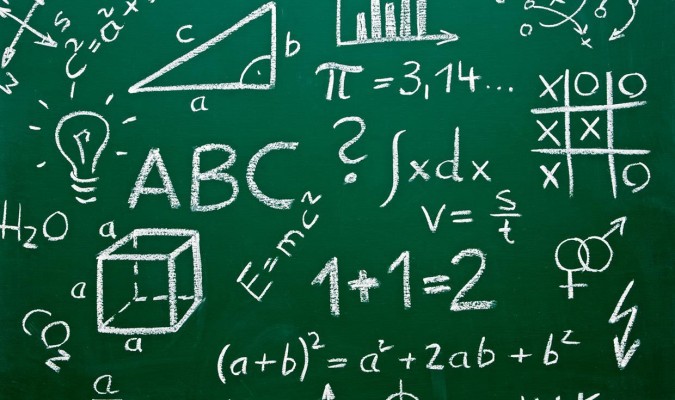 c² = a² +
c
b
a
π = 3,14...
X O O
X X
X O
ABC
?
∫xdx
v = s/t
H₂O
a
a
a
E=mc²
1+1=2
CO₂
(a+b)² = a² + 2ab + b²
a